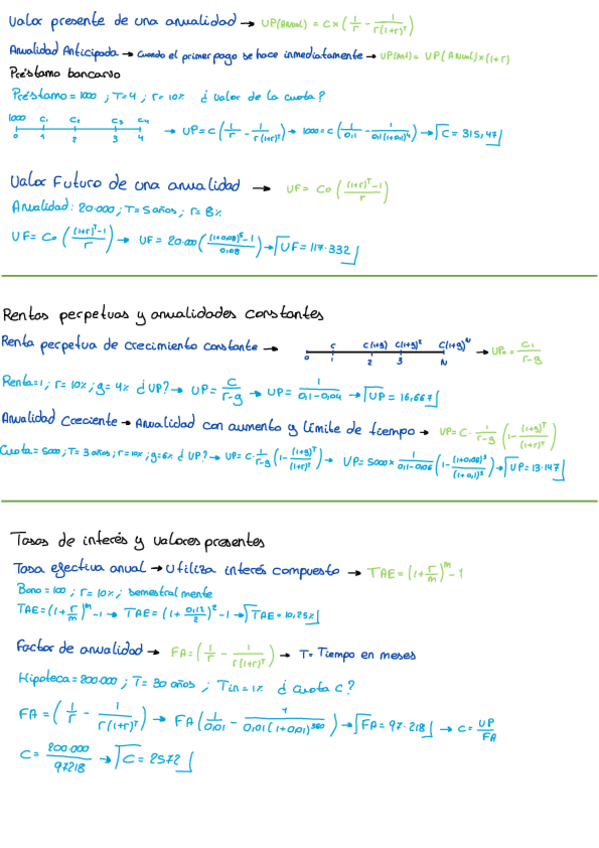 Valor presente de una anualidad → VP(Anual) = C × (1/r - 1/r(1+r)^T)
Anualidad Anticipada → Cuando el primer pago se hace inmediatamente → VP(Ant) = VP(Anual)×(1+r)
Préstamo bancario
Préstamo = 1000 ; T=4 ; r= 10% ¿ Valor de la cuota?
1000 C₁ C₂ C₃ C₄
0 1 2 3 4 → VP= C (1/r - 1/r(1+r)^T) → 1000= C (1/0,1 - 1/0,1(1+0,1)^4) → C = 315,47
Valor Futuro de una anualidad → VF= C₀ ((1+r)^T-1/r)
Anualidad: 20.000 ; T= 5 años ; r= 8%
VF= C₀ ((1+r)^T-1/r) → VF = 20.000 ((1+0,08)^5-1/0,08) → VF = 117.332
Rentas perpetuas y anualidades constantes
Renta perpetua de crecimiento constante → 0 1 2 3 N C C(1+g) C(1+g)² C(1+g)^N → VP₀ = C₁/r-g
Renta=1 ; r= 10% ; g= 4% ¿ VP? → VP= C/r-g → VP= 1/0,1-0,04 → VP = 16,667
Anualidad Creciente → Anualidad con aumento y límite de tiempo → VP= C · 1/r-g (1-(1+g)^T/(1+r)^T)
Cuota = 5000 ; T= 3 años ; r=10% ; g=6% ¿ VP? → VP= C· 1/r-g (1-(1+g)^T/(1+r)^T) → VP= 5000 × 1/0,1-0,06 (1-(1+0,08)³/(1+0,1)³) → VP= 13.147
Tasas de interés y valores presentes
Tasa efectiva anual → Utiliza interés compuesto → TAE = (1+r/m)^m - 1
Bono = 100 ; r= 10% ; semestralmente
TAE = (1+r/m)^m -1 → TAE = (1+0,12/2)² -1 → TAE = 10,25%
Factor de anualidad → FA= (1/r - 1/r(1+r)^T) → T= Tiempo en meses
Hipoteca = 200.000 ; T= 30 años ; Tin = 1% ¿ Cuota C?
FA = (1/r - 1/r(1+r)^T) → FA (1/0,01 - 1/0,01(1+0,01)^360) → FA = 97.218 → C= VP/FA
C= 200.000/97218 → C = 2572